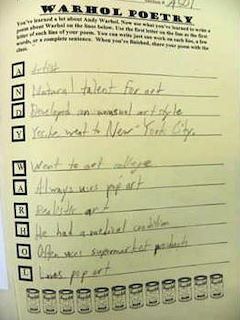 WARHOL POETRY
You've learned a bit about Andy Warhol. Now use what you've learned to write a
poem about Warhol on the lines below. Use the first letter on the line as the first
letter of each line of your poem. You can write just one word on each line, a few
words, or a complete sentence. When you're finished, share your poem with the
class.
A Artist
N Natural talent for art
D Developed an unusual art style
Y Yes, he went to New York City.
W Went to art college
A Always uses pop art
R Realistic art
H He had a medical condition
O Often uses supermarket products
L Loves pop art